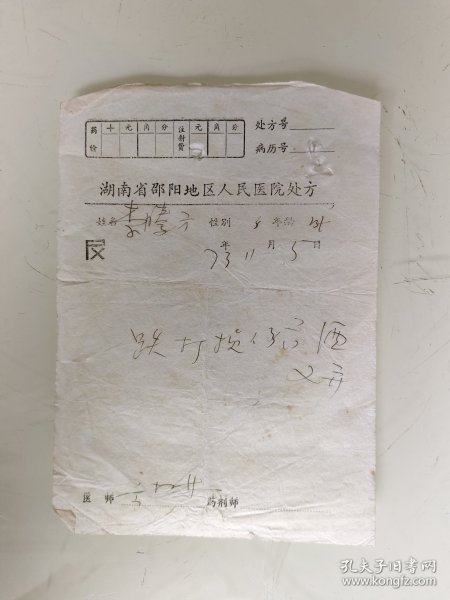 药价 十 元 角 分 注射费 元 角 分
处方号
病历号
湖南省邵阳地区人民医院处方
姓名 李 方 性别 年龄
73年11月5日
跌打损伤 酒
医师 药剂师
孔夫子旧书网
www.kongfz.com